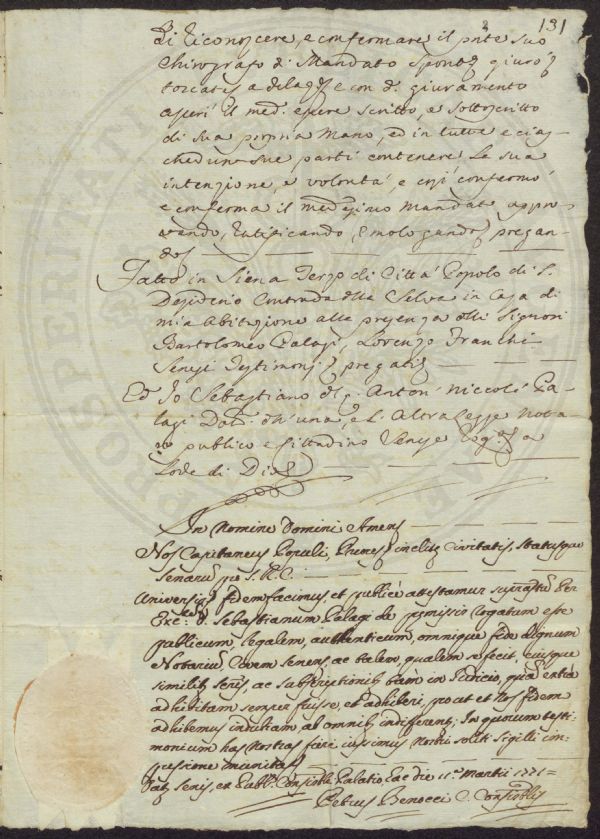 131
di riconoscere, e confermare il pnte suo
Chirografo di Mandato spont. giurò
toccatis a delag. e con d. giuramento
asserì il med. essere scritto, e sottoscritto
di sua propria mano, ed in tutte e cias-
cheduna sue parti contenere la sua
intenzione, e volontà, e così confermò
e conferma il medesimo Mandato appro-
vando, ratificando, emologando, pregan-
dos
Fatto in Siena Terzo di Città Popolo di S.
Desiderio Contrada della Selva in Casa di
mia Abitazione alla presenza delli Signori
Bartolomeo Palagi, Lorenzo Franchi
Senesi Testimonj pregati
Ed Io Sebastiano del q. Anton Niccolò Pa-
lagi Dot. dell'una, e l'Altra Legge Nota-
ro publico e Cittadino Senese Rog. a
Lode di Dio
In Nomine Domini Amen
Nos Capitaneus Populi, inclitę Civitatis, Statusque
Senarum pro S. R. C.
Universis fidem facimus et publicè attestamur supradictum Per
Exc. D. Sebastianum Palagi de premissis rogatum esse
publicum, legalem, authenticum, omnique fide dignum
Notarium, Civem Senens, ac talem, qualem se fecit, eiusque
similib. Scrip., ac subscriptionib. tam in Iudicio, quam extra
adhibitam semper fuisse, et adhiberi, prout et Nos fidem
adhibemus indubiam, ab omnib. indifferent; In quorum testi-
monium has Nostras fieri iussimus Nostri soliti Sigilli im-
pressione munitas
Dat. Senis, ex Publ. Consistli Palatio, hac die 11 Martii 1771=
Petrus Benocci C. Consistlis